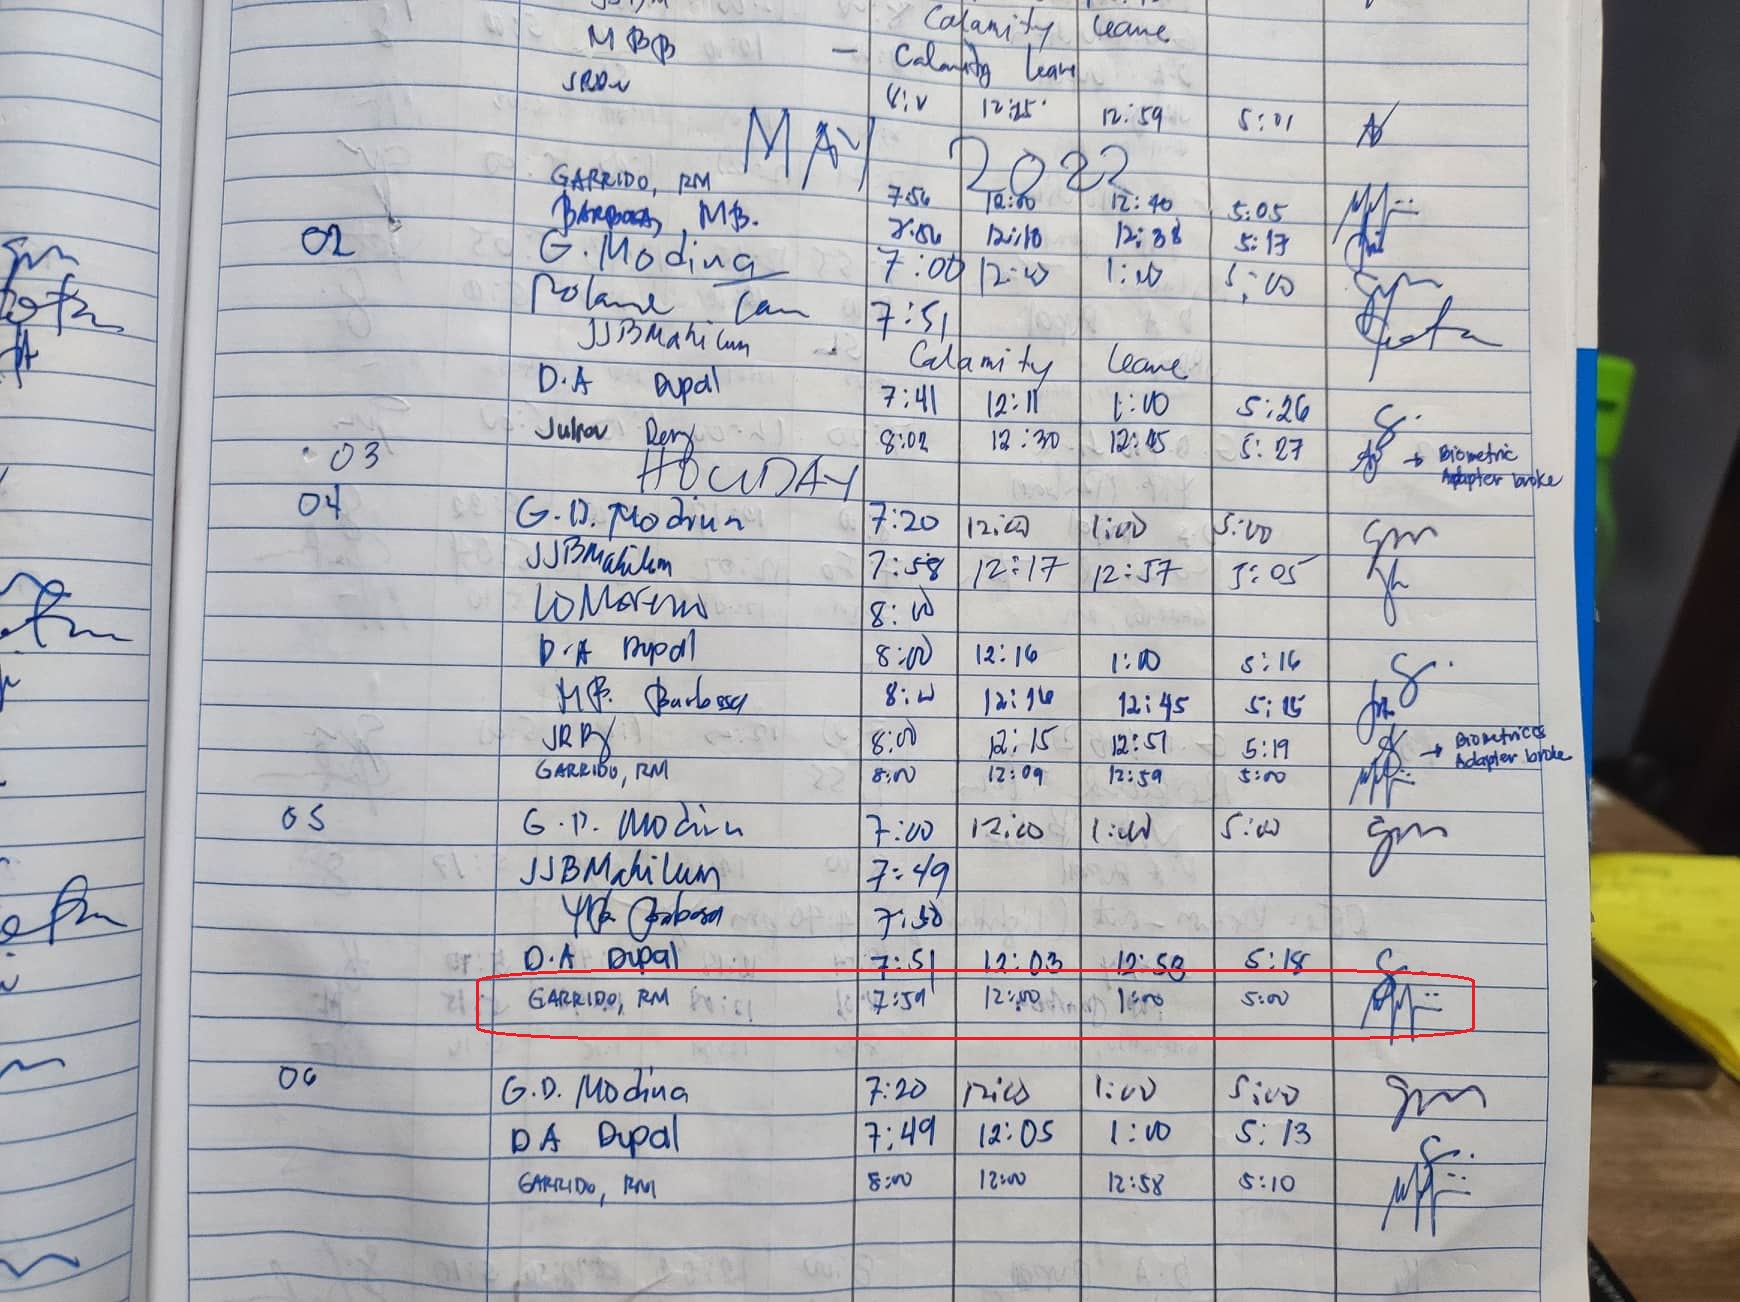 Calamity Leave
MBB - Calamity Leave
12:25 12:59 5:01
MAY 2022
GARRIDO, RM 7:56 12:00 12:40 5:05
BARBOSA, MB. 7:56 12:10 12:38 5:17
02 G. Modina 7:00 12:00 1:00 5:00
7:51
JJBMahilum Calamity Leave
D.A Dupal 7:41 12:11 1:00 5:26
8:02 12:30 12:45 5:27 → Biometric
Adapter broke
03 HOLIDAY
04 G.D. Modina 7:20 12:00 1:00 5:00
JJBMahilum 7:58 12:17 12:57 5:05
LOMoreno 8:00
D.A Dupal 8:00 12:16 1:00 5:16
MB. Barbosa 8:00 12:16 12:45 5:15
8:00 12:15 12:51 5:19 → Biometrics
Adapter broke
GARRIDO, RM 8:00 12:09 12:59 5:00
05 G.D. Modina 7:00 12:00 1:00 5:00
JJBMahilum 7:49
Barbosa 7:50
D.A Dupal 7:51 12:03 12:58 5:18
GARRIDO, RM 7:59 12:00 1:00 5:00
06 G.D. Modina 7:20 12:00 1:00 5:00
DA Dupal 7:49 12:05 1:00 5:13
GARRIDO, RM 8:00 12:00 12:58 5:10